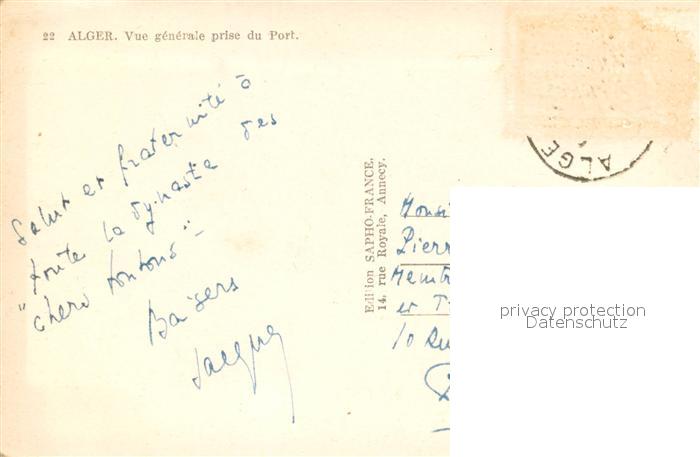 22 ALGER. Vue générale prise du Port.
Salut et fraternité à
"toute la dynastie des
chers tontons"_
Baisers
Jacques
Edition SAPHO-FRANCE,
14, rue Royale, Annecy.
ALGE
Monsi
Pierr
Memb
et T
10 Ru
privacy protection
Datenschutz